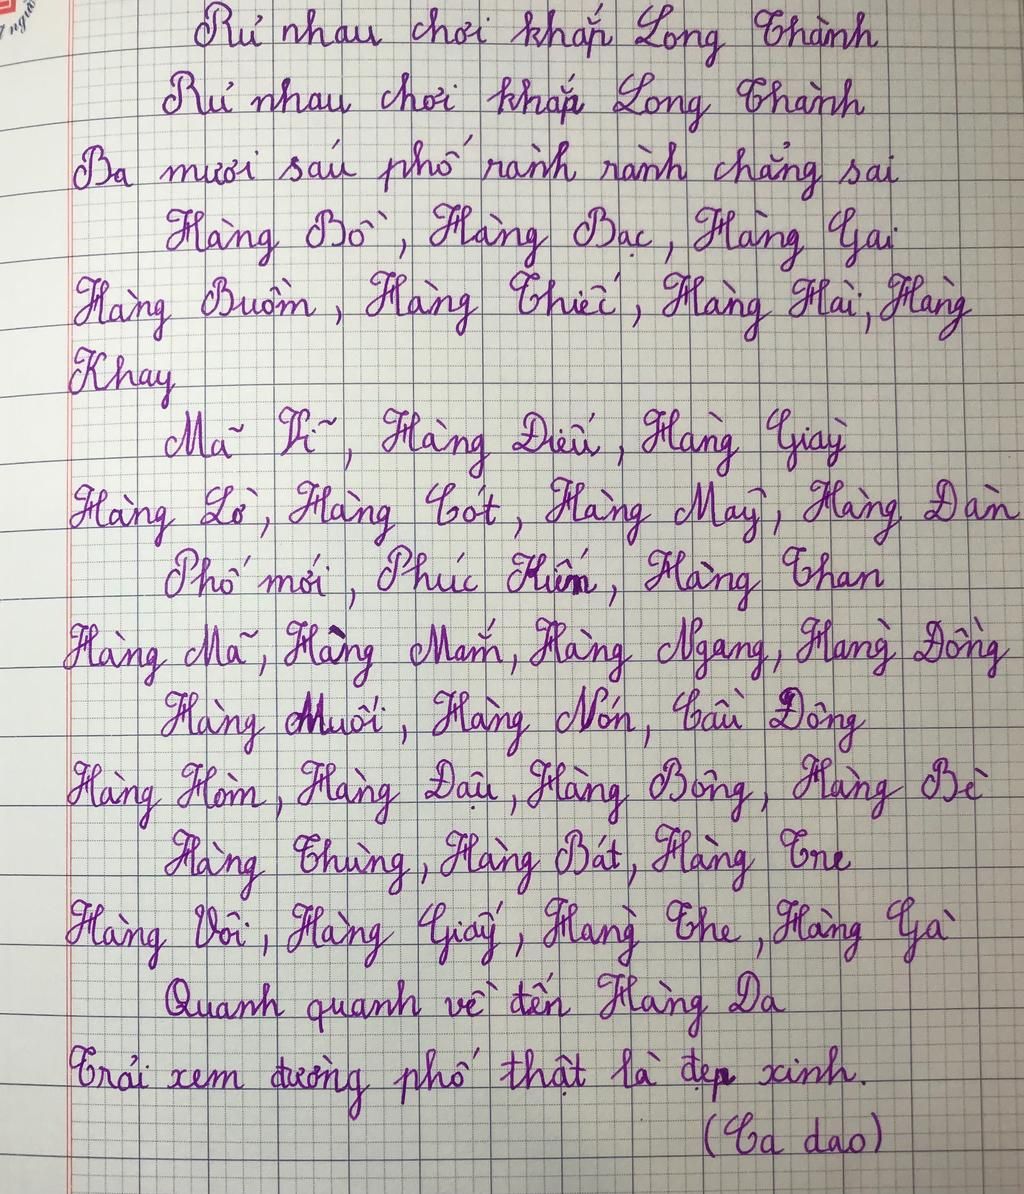 Rủ nhau chơi khắp Long Thành
Rủ nhau chơi khắp Long Thành
Ba mươi sáu phố rành rành chẳng sai
Hàng Bồ, Hàng Bạc, Hàng Gai
Hàng Buồm, Hàng Thiếc, Hàng Hài, Hàng
Khay
Mã Vĩ, Hàng Điếu, Hàng Giày
Hàng Lờ, Hàng Cót, Hàng Mây, Hàng Đàn
Phố mới, Phúc Kiến, Hàng Than
Hàng Mã, Hàng Mắm, Hàng Ngang, Hàng Đồng
Hàng Muối, Hàng Nón, Cầu Đông
Hàng Hòm, Hàng Đậu, Hàng Bông, Hàng Bè
Hàng Thùng, Hàng Bát, Hàng Tre
Hàng Vôi, Hàng Giấy, Hàng The, Hàng Gà
Quanh quanh về đến Hàng Da
Trải xem đường phố thật là đẹp xinh.
(Ca dao)